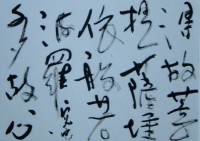 得故菩
提薩埵
依般若
波羅蜜
多故心